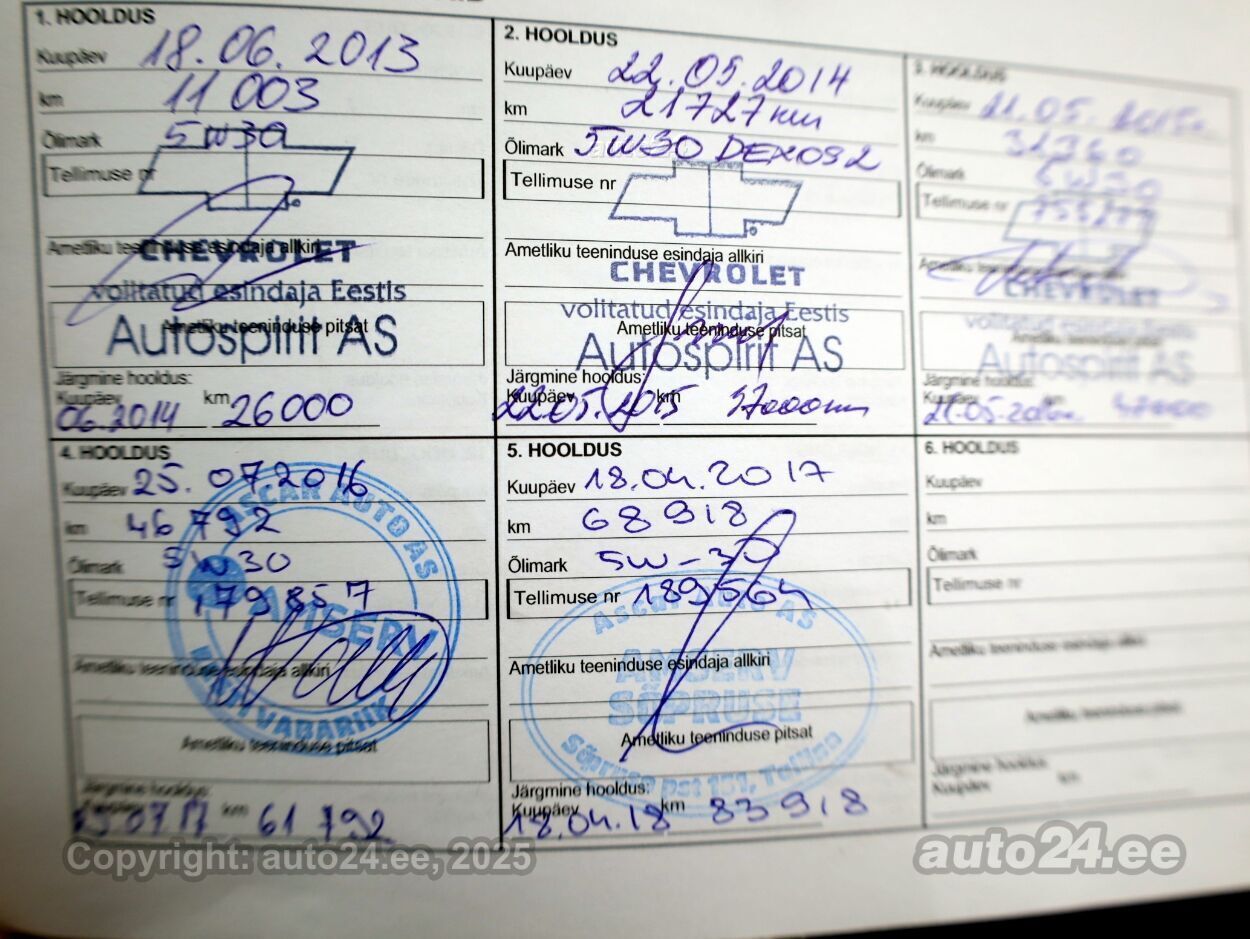 1. HOOLDUS
Kuupäev 18.06.2013
km 11 003
Õlimark 5W30
Tellimuse nr
Ametliku teeninduse esindaja allkiri
CHEVROLET
volitatud esindaja Eestis
Ametliku teeninduse pitsat
Autospirit AS
Järgmine hooldus:
Kuupäev 06.2014 km 26000
2. HOOLDUS
Kuupäev 22.05.2014
km 21727 km
Õlimark 5W30 DEXOS2
Tellimuse nr
Ametliku teeninduse esindaja allkiri
CHEVROLET
volitatud esindaja Eestis
Ametliku teeninduse pitsat
Autospirit AS
Järgmine hooldus:
Kuupäev 22.05.2015 km 37000km
3. HOOLDUS
Kuupäev
km
Õlimark 5W30
Tellimuse nr
Ametliku teeninduse esindaja allkiri
CHEVROLET
volitatud esindaja Eestis
Ametliku teeninduse pitsat
Autospirit AS
Järgmine hooldus:
Kuupäev km
4. HOOLDUS
Kuupäev 25.07.2016
km 46 792
Õlimark 5W30
Tellimuse nr 179857
ASCAR AUTO AS
AMSERV
EESTI VABARIIK
Ametliku teeninduse esindaja allkiri
Ametliku teeninduse pitsat
Järgmine hooldus:
Kuupäev 25.07.17 km 61 792
5. HOOLDUS
Kuupäev 18.04.2017
km 68918
Õlimark 5W-30
Tellimuse nr 189564
Ascar Auto AS
Ametliku teeninduse esindaja allkiri
AMSERV
SÕPRUSE
Ametliku teeninduse pitsat
Sõpruse pst 151, Tallinn
Järgmine hooldus:
Kuupäev 18.04.18 km 83918
6. HOOLDUS
Kuupäev
km
Õlimark
Tellimuse nr
Ametliku teeninduse esindaja allkiri
Ametliku teeninduse pitsat
Järgmine hooldus:
Kuupäev km
Copyright: auto24.ee, 2025
auto24.ee